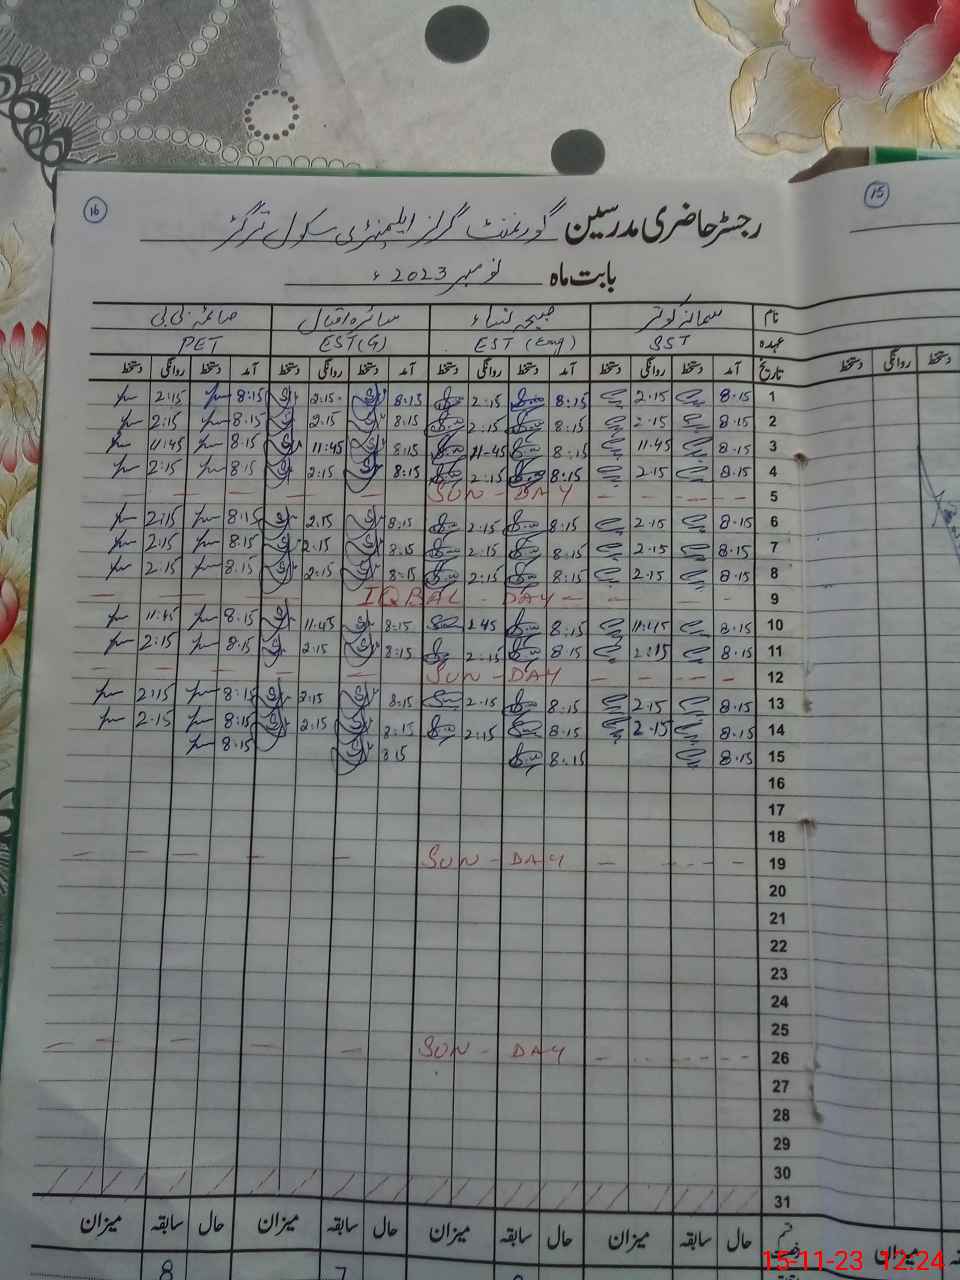 16
15
رجسٹر حاضری مدرسین گورنمنٹ گرلز ایلیمنٹری سکول ترگڑ
بابت ماہ نومبر 2023ء
نام سمانہ کوثر صبیحہ نساء سائرہ اقبال صائمہ بی بی
عہدہ SST EST (Eng) EST (G) PET
تاریخ آمد دستخط روانگی دستخط آمد دستخط روانگی دستخط آمد دستخط روانگی دستخط آمد دستخط روانگی دستخط
دستخط روانگی دستخط
1 8:15 2:15 8:15 2:15 8:15 2:15 8:15 2:15
2 8:15 2:15 8:15 2:15 8:15 2:15 8:15 2:15
3 8:15 11:45 8:15 11-45 8:15 11:45 8:15 11:45
4 8:15 2:15 8:15 2:15 8:15 2:15 8:15 2:15
5 SUN - DAY
6 8:15 2:15 8:15 2:15 8:15 2:15 8:15 2:15
7 8:15 2:15 8:15 2:15 8:15 2:15 8:15 2:15
8 8:15 2:15 8:15 2:15 8:15 2:15 8:15 2:15
9 IQBAL - DAY
10 8:15 11:45 8:15 1:45 8:15 11:45 8:15 11:45
11 8:15 2:15 8:15 2:15 8:15 2:15 8:15 2:15
12 SUN - DAY
13 8:15 2:15 8:15 2:15 8:15 2:15 8:15 2:15
14 8:15 2:15 8:15 2:15 8:15 2:15 8:15 2:15
15 8:15 8:15 8:15 8:15
16
17
18
19 SUN - DAY
20
21
22
23
24
25
26 SUN - DAY
27
28
29
30
31
حال سابقہ میزان حال سابقہ میزان حال سابقہ میزان حال سابقہ میزان
میزان
7 8
15-11-23 12:24